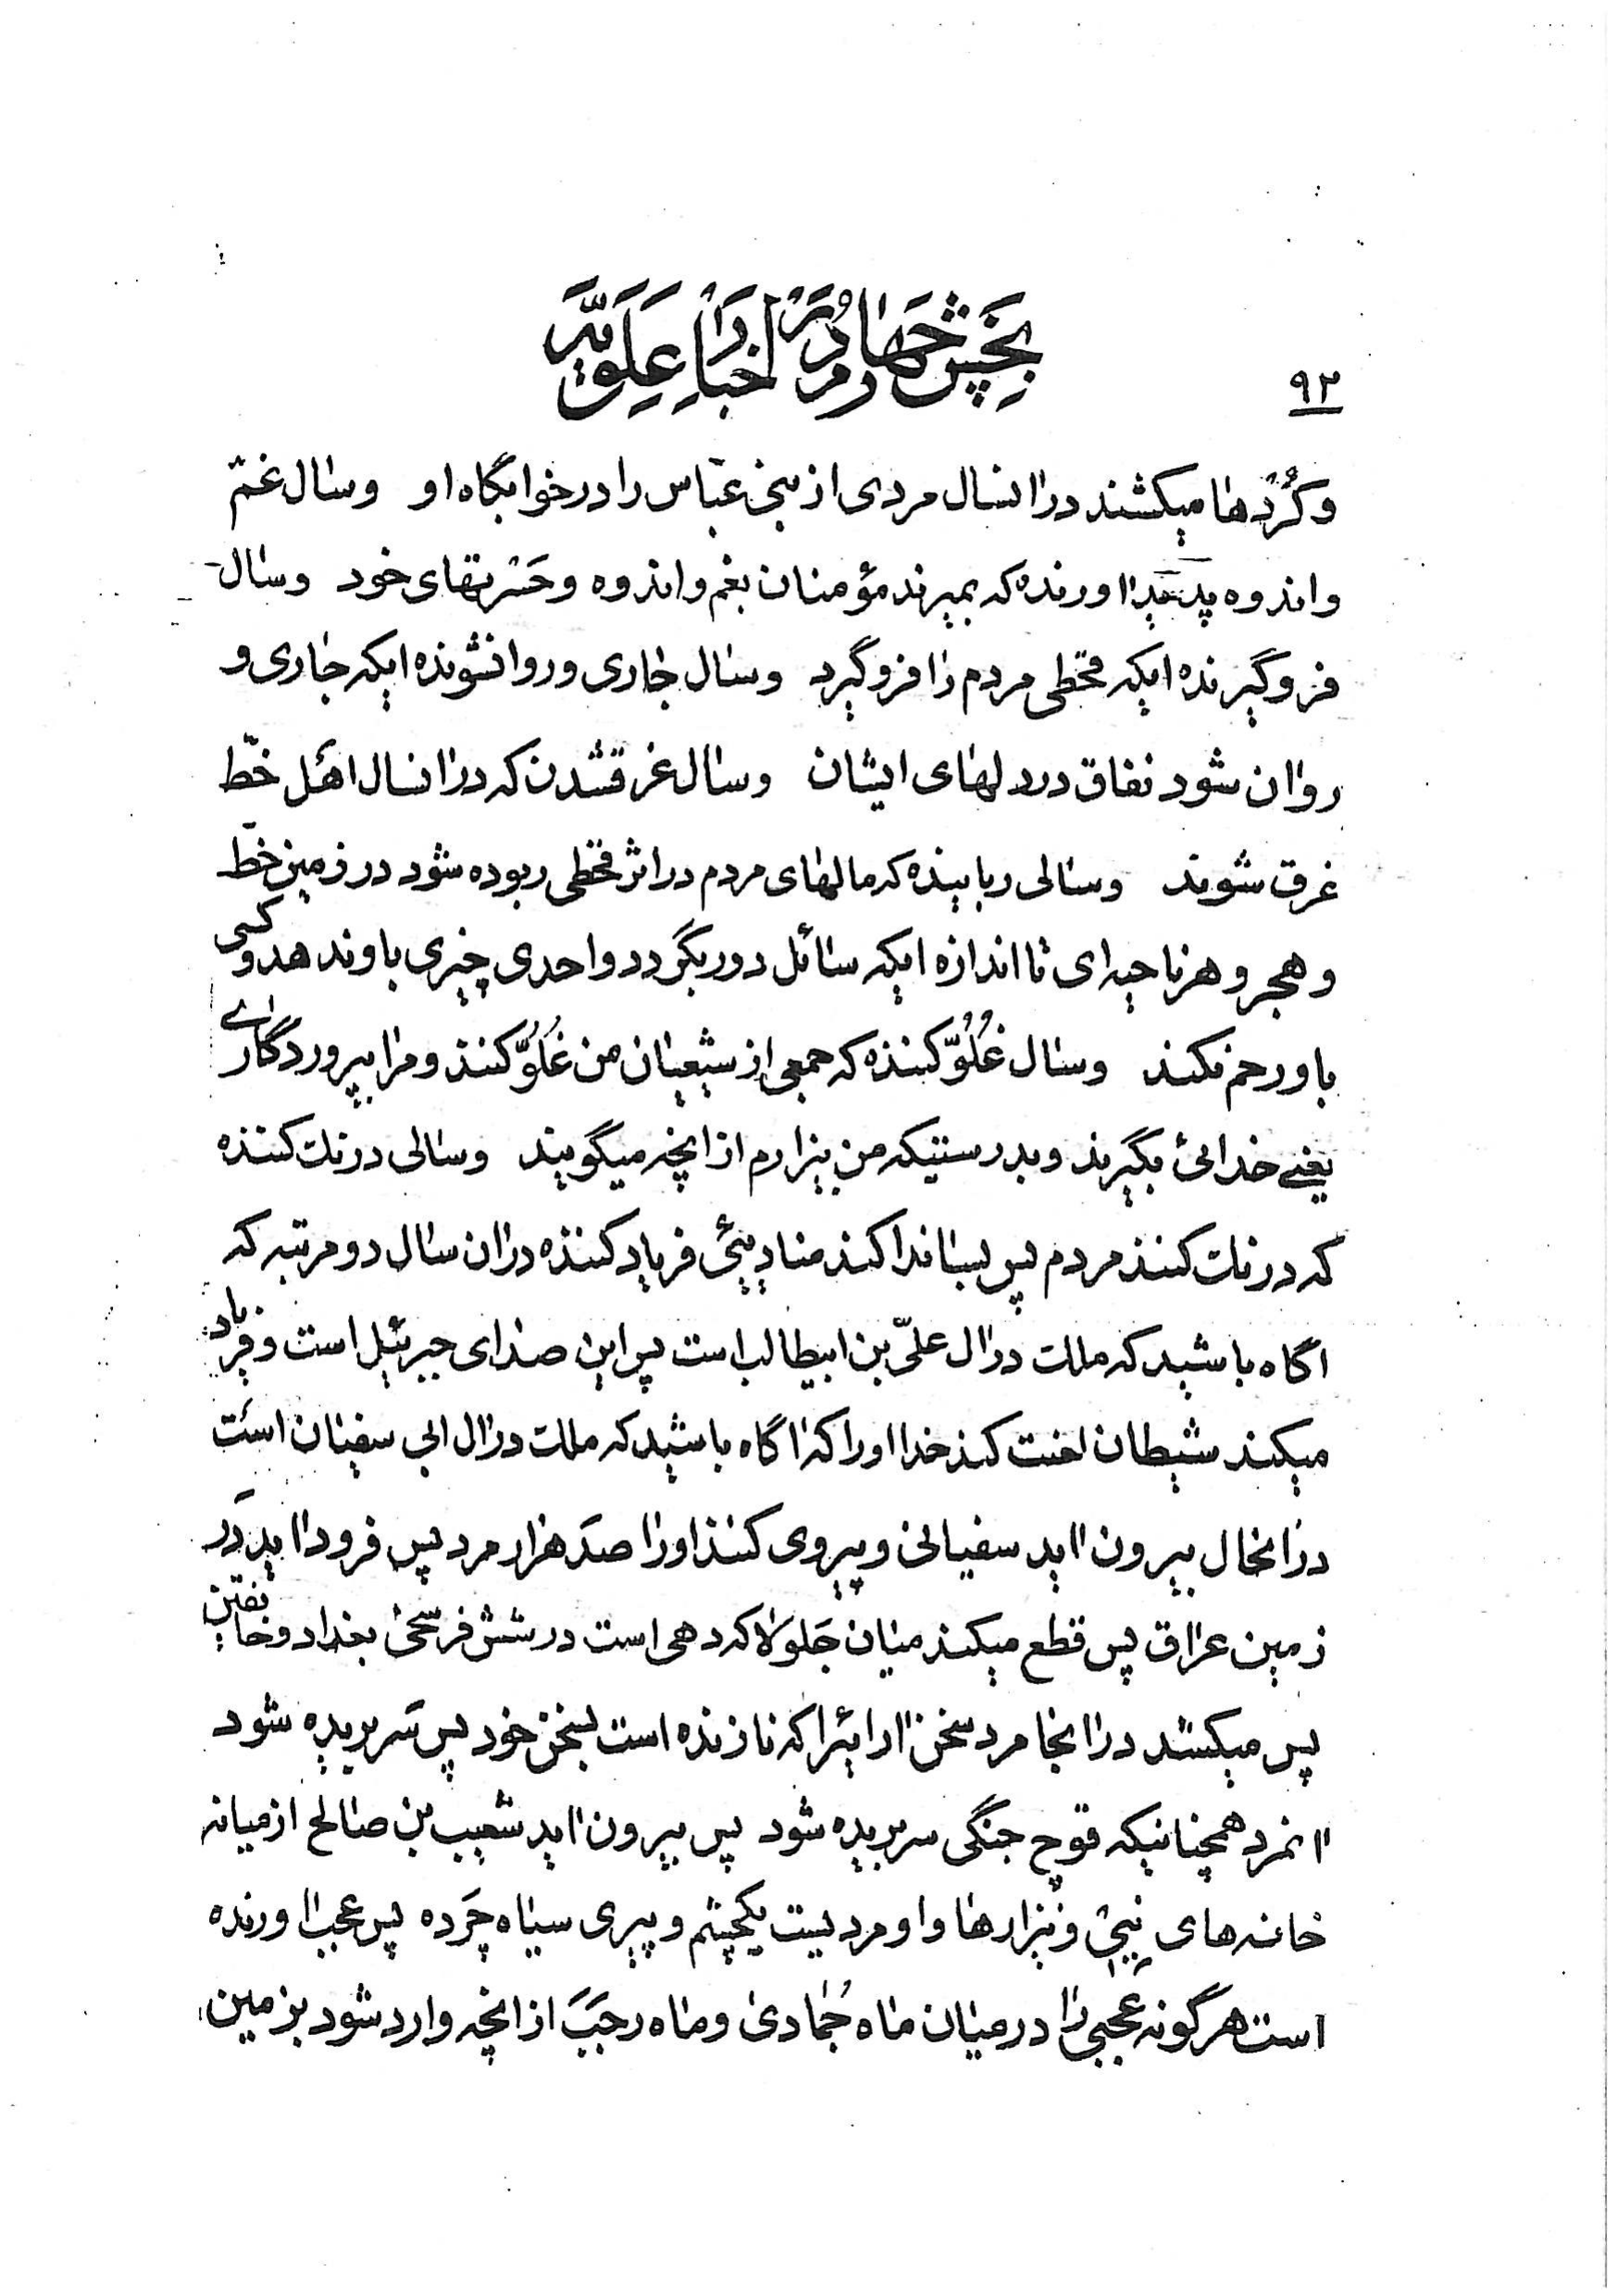 بخش چهارم در اخبار علویه
۹۲
وکُردها میکشند در اانسال مردی از بنی عبّاس را در خوابگاه او وسال غم
واندوه پدید اورنده که بمیرند مؤمنان بغم واندوه وحَسْرتهای خود وسال
فروگیرنده ایکه قحطی مردم را فروگیرد وسال جاری وروانشونده ایکه جاری و
روان شود نفاق در دلهای ایشان وسال غرقشدن که در اانسال اهل خطّ
غرق شوند وسالی ربایینده که مالهای مردم در اثر قحطی ربوده شود در زمین خطّ
وهجر وهر ناحیه ای تا اندازه ایکه سائل دور بگردد واحدی چیزی باو ندهد وکسی
باو رحم نکند وسال غُلُوّ کننده که جمعی از شیعیان من غُلُوّ کنند ومرا بپروردگاری
یعنی خدائی بگیرند وبدرستیکه من بیزارم از انچه میگویند وسالی درنك کننده
که درنك کنند مردم پس بسا ندا کند منادیئی فریاد کننده در ان سال دو مرتبه که
اگاه باشید که ملك در ال علیّ بن ابیطالب است پس این صدای جبرئیل است وفریاد
میکند شیطان لعنت کند خدا او را که اگاه باشید که ملك در ال ابی سفیان است
در انحال بیرون ااید سفیانی وپیروی کنند او را صد هزار مرد پس فرود ااید در
زمین عراق پس قطع میکند میان جَلَولا که دهی است در شش فرسخی بغداد وخانقین
پس میکشد در اانجا مرد سخن اارائیرا که نازنده است بسخن خود پس سَر بریده شود
اانمرد همچنانیکه قوچ جنگی سر بریده شود پس بیرون ااید شعیب بن صالح از میانه
خانه های نیی ونیزارها واو مردیست یکچشم وپیری سیاه چَرده پس عجب ااورنده
است هرگونه عجبی را در میان ماه جُمادی وماه رجبَ از انچه وارد شود بزمین